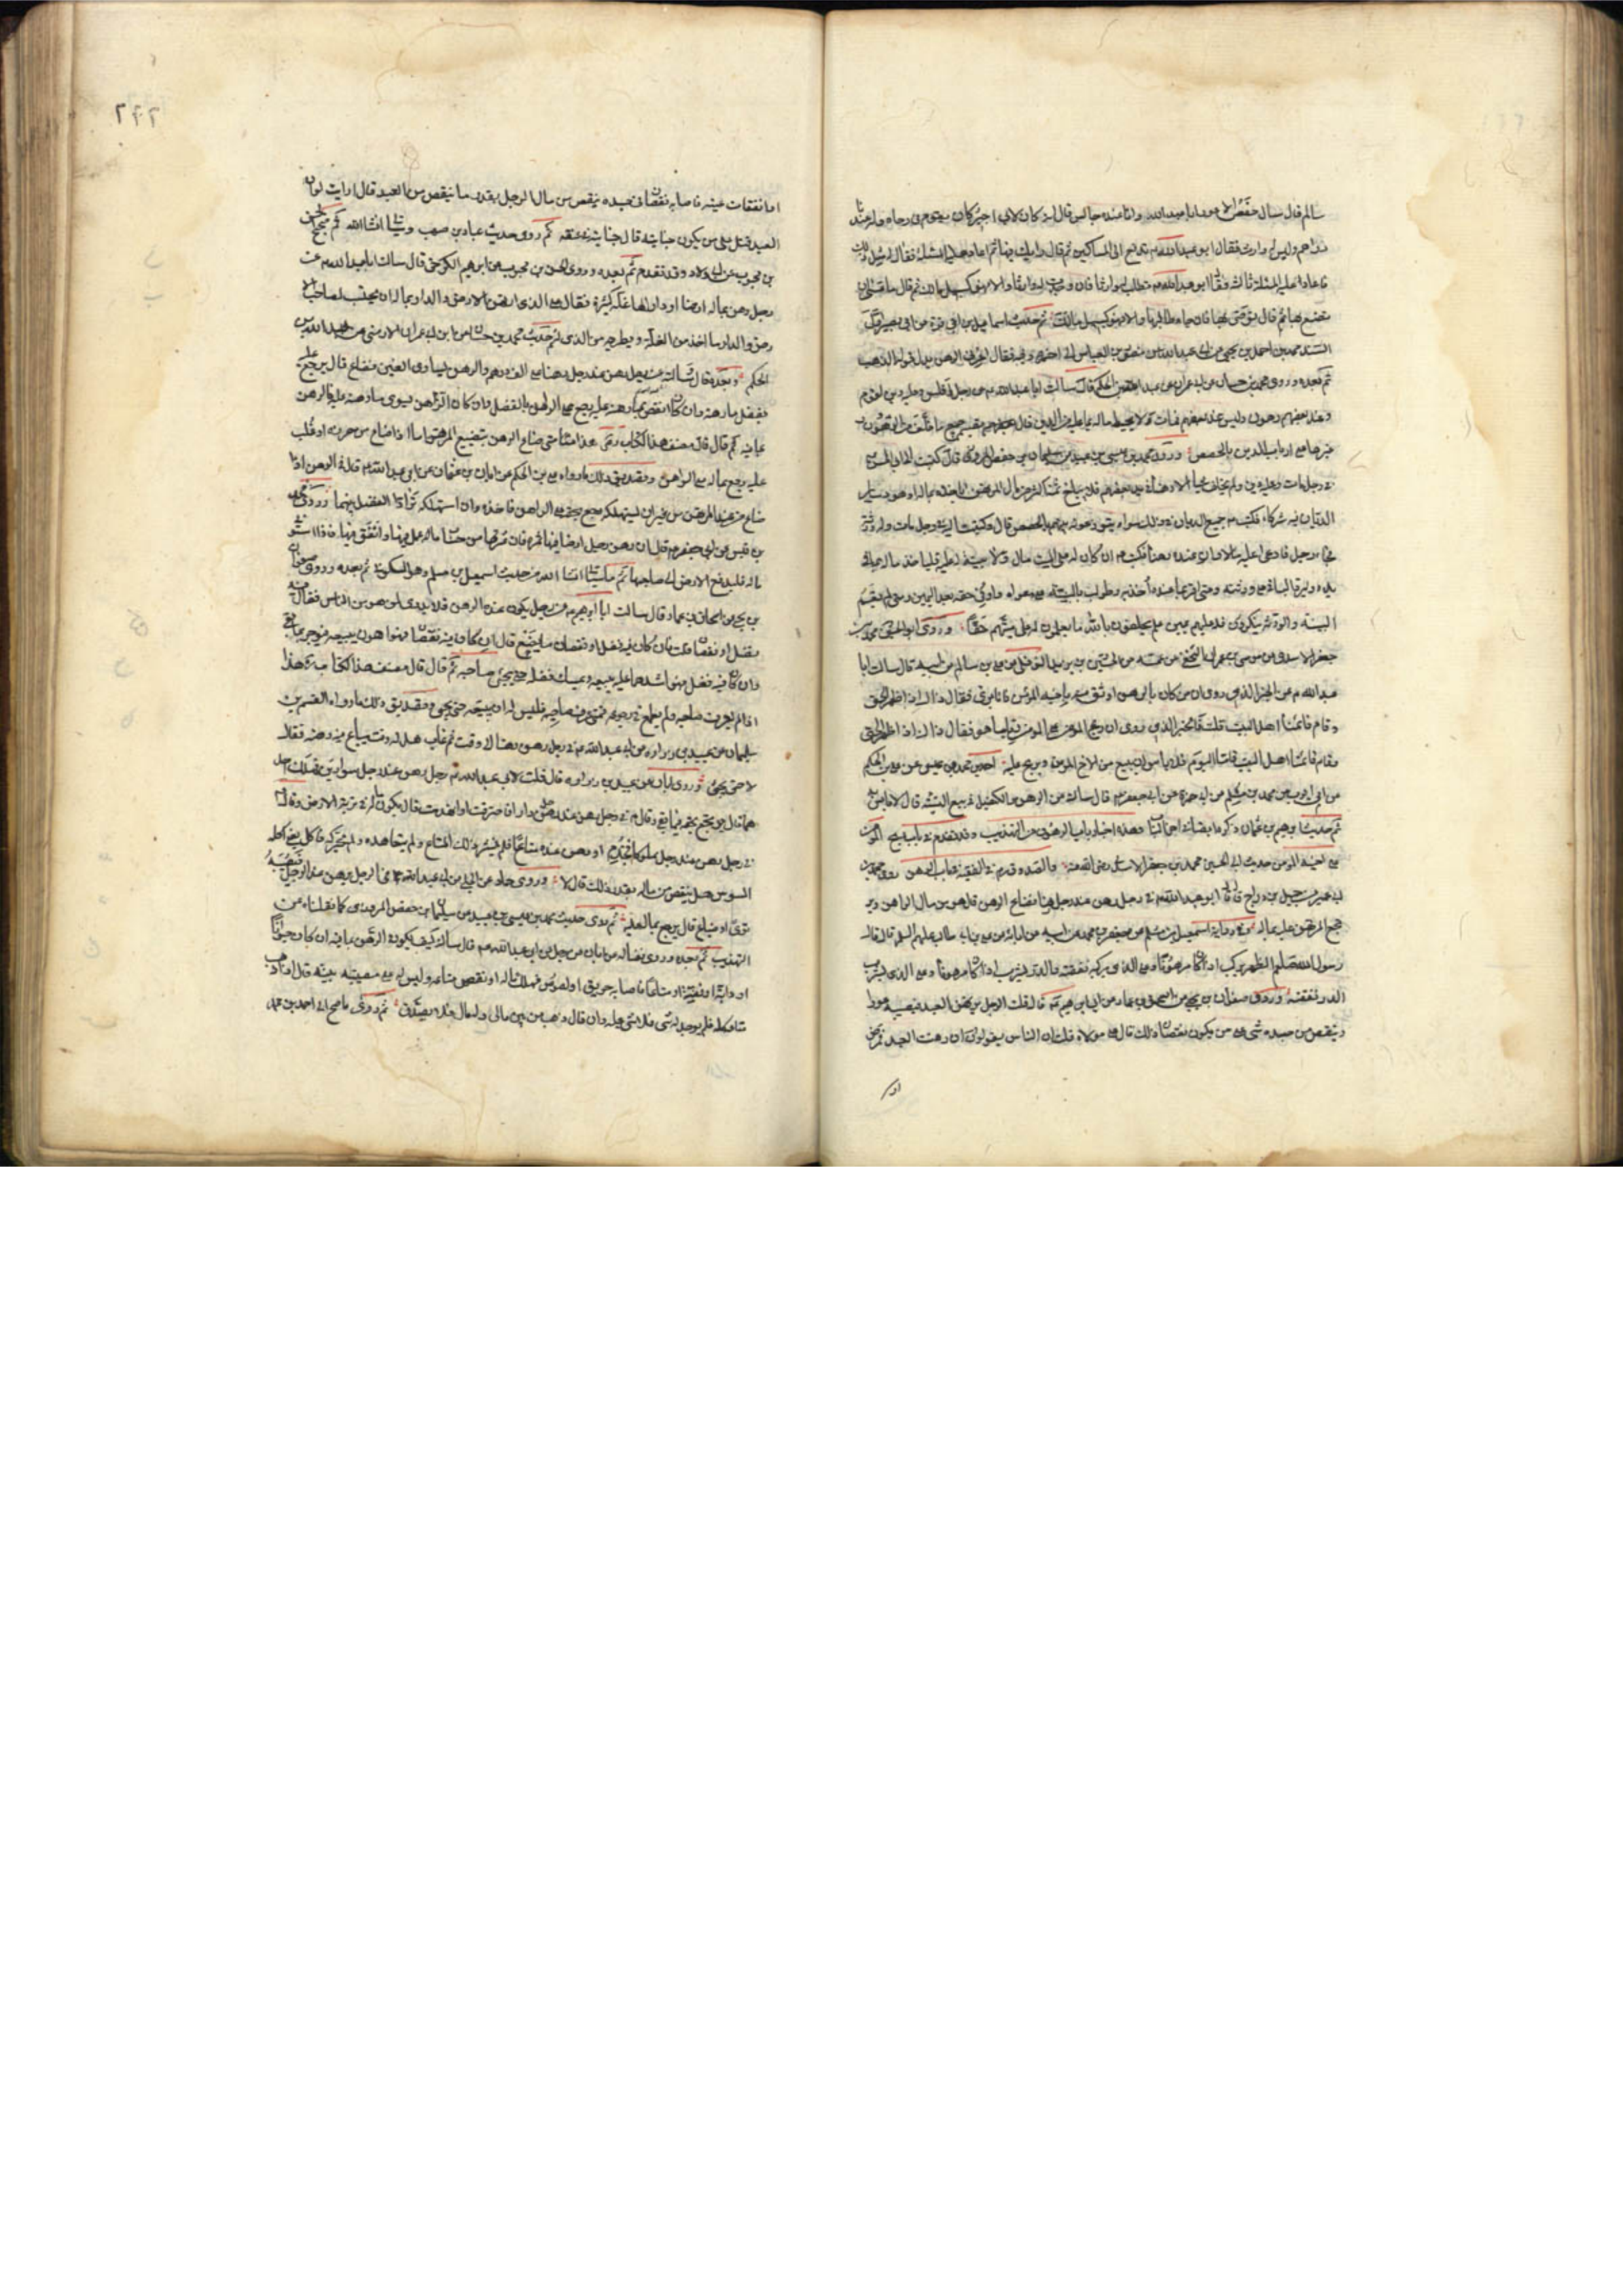 سالم قال سال حفص الاعور ابا عبد الله وانا عنده جالس قال انه كان لابي اجير كان يقوم في رحاه وله عندنا
دراهم وليس له وارث فقال ابو عبد الله م تدفع الى المساكين ثم قال رايك فيها ثم اعاد عليه المسئلة فقال له مثل ذلك
فاعاد عليه المسئلة ثالثة فقال ابو عبد الله م تطلب له وارثا فان وجدت له وارثا والا فهو كسبيل مالك ثم قال ما عسى ان
تصنع بها ثم قال توصي بها فان جاء طالبها والا فهو كسبيل مالك ثم حديث اسماعيل بن ابي قرة عن ابي بصير
السند محمد بن احمد بن يحيى عن ابي عبد الله عن منصور بن العباس الى اخره وفيه فقال
ثم بعده وروى محمد بن حسان عن ابي عمران عن عبد الله بن الحكم قال سالت ابا عبد الله م عن رجل افلس وعليه دين لقوم
وعند بعضهم رهون وليس عند بعضهم فمات ولا يحيط ماله بما عليه من الدين قال يقسم جميع ما خلف من الرهون و
غيرها على ارباب الدين بالحصص وروى محمد بن عيسى بن عبيد عن سليمان بن حفص المروزي قال كتبت الى ابي الحسن م
في رجل مات وعليه دين ولم يخلف شيئا الا رهنا في يد بعضهم فلا يبلغ ثمنه اكثر من مال المرتهن ايأخذه بماله او هو وسائر
الديان فيه شركاء فكتب م جميع الديان في ذلك سواء يتوزعونه بينهم بالحصص قال وكتبت اليه في رجل مات وله ورثة
فجاء رجل فادعى عليه مالا وان عنده رهنا فكتب م ان كان له على الميت مال ولا بينة له عليه فليأخذ ماله مما في
يده وليرد الباقي على ورثته ومتى اقر بما عنده أخذ به وطولب بالبينة على دعواه واوفي حقه بعد اليمين ومتى لم يقم
البينة والورثة ينكرون فله عليهم يمين علم يحلفون بالله ما يعلمون ان له على ميتهم حقا وروى ابو الحسين محمد بن
جعفر الاسدي عن موسى بن عمران النخعي عن عمه الحسين بن يزيد النوفلي عن علي بن سالم عن ابيه قال سالت ابا
عبد الله م عن الخبر الذي روي ان من كان بالرهن اوثق منه باخيه المؤمن فانا منه بريء فقال ذاك اذا ظهر الحق
وقام قائمنا اهل البيت قلت فالخبر الذي روي ان ربح المؤمن على المؤمن ربا ما هو فقال ذاك اذا ظهر الحق
وقام قائمنا اهل البيت فاما اليوم فلا باس ان يبيع من الاخ المؤمن ويربح عليه احمد بن محمد بن عيسى عن علي بن الحكم
عن ابي ايوب عن محمد بن مسلم عن ابي حمزة عن ابي جعفر م قال سالته عن الرهن والكفيل في بيع النسيئة قال لا باس به
ثم حديث ابرهيم بن عثمان وهذه اخبار باب الرهون من التهذيب وقد تقدم في باب بيع المؤمن
على اخيه المؤمن حديث ابي الحسين محمد بن جعفر الاسدي رضي الله عنه روى محمد بن
ابي عمير عن جميل بن دراج قال قال ابو عبد الله م في رجل رهن عند رجل رهنا فضاع الرهن قال هو من مال الراهن وير
جع المرتهن عليه بماله وفي رواية اسمعيل بن مسلم عن جعفر بن محمد عن ابيه عن ابائه عن علي عليهم السلم قال قال
رسول الله صلعم الظهر يركب اذا كان مرهونا وعلى الذي يركبه نفقته والدر يشرب اذا كان مرهونا وعلى الذي يشرب
الدر نفقته وروى صفوان بن يحيى عن اسحق بن عمار عن ابي ابرهيم م قال قلت الرجل يرهن العبد فيصيبه عور او
ينقص من جسده شيء على من يكون نقصان ذلك قال على مولاه قلت ان الناس يقولون ان رهنت العبد فمرض
او
٢٤٢
او انفقات عينه فاصابه نقصان في جسده ينقص من مال الرجل بقدر ما ينقص من العبد قال ارايت لو ان
العبد قتل على من يكون جنايته قال جنايته في عنقه ثم روى حديث عباد بن صهيب وسياتي انشا الله ثم
بن محبوب عن ابي ولاد وقد تقدم ثم بعده وروى الحسن بن محبوب عن ابرهيم الكرخي قال سالت ابا عبد الله م عن
رجل رهن بماله ارضا او دارا لها غلة كثيرة فقال على الذي ارتهن الارض والدار بماله ان يحتسب لصاحب الا
رض والدار ما اخذ من الغلة ويطرحه من الذي له ثم حديث محمد بن حسان عن ابي عمران الارمني عن عبد الله بن
الحكم وبعده قال سالته عن رجل رهن عند رجل رهنا على الف درهم والرهن يساوي الفين فضاع قال يرجع عليه
بفضل ما رهنه وان كان انقص مما رهنه عليه يرجع على الراهن بالفضل وان كان الرهن يسوى ما رهنه عليه فالرهن
بما فيه ثم قال قال مصنف هذا الكتاب رضي هذا متى ضاع الرهن بتضييع المرتهن فاما اذا ضاع من حرزه او غلب
عليه رجع بماله على الراهن وتصديق ذلك ما رواه علي بن الحكم عن ابان بن عثمان عن ابي عبد الله م قال في الرهن اذا
ضاع من عند المرتهن من غير ان يستهلكه رجع بحقه على الراهن فاخذه وان استهلكه ترادا الفضل بينهما وروى محمد
بن قيس عن ابي جعفر م قال ان رهن رجل ارضا فيها ثمرة فان ثمرتها من حساب ماله وله حساب ما عمل فيها وانفق منها فاذا استوفى
ماله فليدفع الارض الى صاحبها ثم ماسياتي انشا الله من حديث اسمعيل بن مسلم وهو السكوني ثم بعده وروى صفوان
بن يحيى عن اسحاق بن عمار قال سالت ابا ابرهيم م عن رجل يكون عنده الرهن فلا يدري لمن هو من الناس فقال
فضل او نقصان قلت فان كان فيه فضل او نقصان ما يصنع قال ان كان فيه نقصان فهو اهون يبيعه فيؤجر بما بقي
وان كان فيه فضل فهو اشدهما عليه يبيعه ويمسك فضله حتى يجيء صاحبه ثم قال قال مصنف هذا الكتاب هذا
اذا لم يعرف صاحبه ولم يطمع في رجوعه فمتى عرف صاحبه فليس له ان يبيعه حتى يجيء وتصديق ذلك ما رواه القسم بن
سليمان عن عبيد بن زراره عن ابي عبد الله م في رجل رهن رهنا الى وقت ثم غاب هل له وقت يباع فيه رهنه فقال
لا حتى يجيء وروى ابان عن عبيد بن زراره قال قلت لابي عبد الله م رجل رهن عند رجل سوارين فهلك احد
هما قال يرجع بحقه فيما بقي وقال م في رجل رهن عند رجل دارا فاحترقت او انهدمت قال يكون ماله في تربة الارض وقال م
في رجل رهن عند رجل مملوكا فجذم او رهن عنده متاعا فلم ينشر ذلك المتاع ولم يتعاهده ولم يحركه فاكل يعني اكله
السوس هل ينقص من ماله بقدر ذلك قال لا وروى حماد عن الحلبي عن ابي عبد الله م في الرجل يرهن عند الرجل الرهن فيصيبه
توى او ضياع قال يرجع بماله عليه ثم روى حديث محمد بن عيسى بن عبيد عن سليمان بن حفص المروزي كما نقلناه من
التهذيب ثم بعده وروى فضالة عن ابان عن رجل عن ابي عبد الله م قال سالته كيف يكون الرهن بما فيه ان كان حيوانا
او دابة او فضة او متاعا فاصابه حريق او لصوص فهلك ماله او نقص متاعه وليس له على مصيبته بينة قال اذا ذهب
متاعه كله فلم يوجد له شيء فلا شيء عليه وان قال ذهب من بين مالي وله مال فلا يصدق ثم روى ما صح الى احمد بن محمد